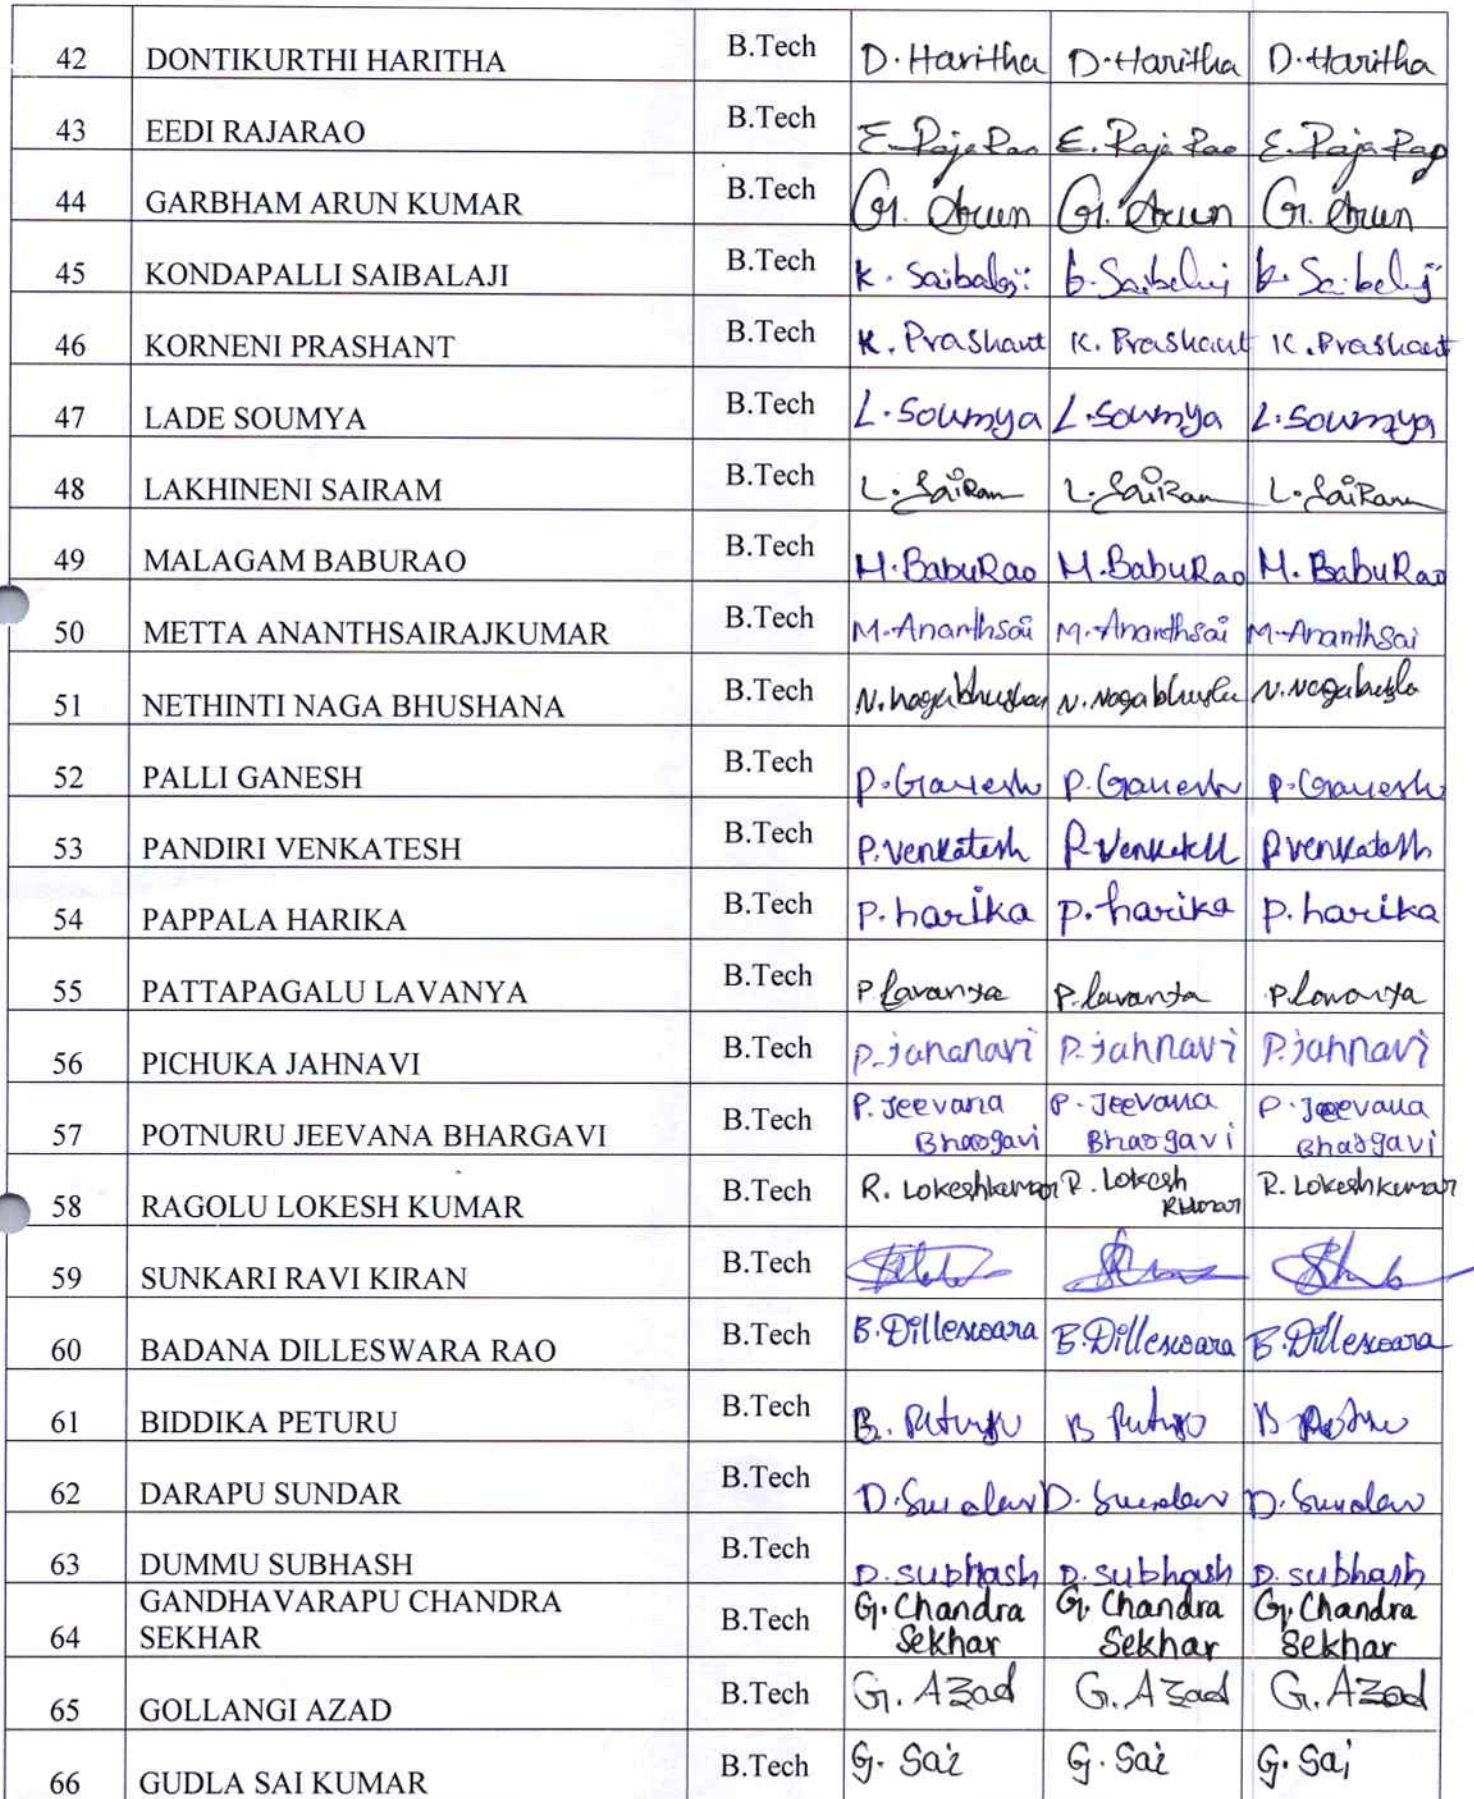 42 DONTIKURTHI HARITHA B.Tech D. Haritha D. Haritha D. Haritha
43 EEDI RAJARAO B.Tech E. Raja Rao E. Raja Rao E. Raja Rao
44 GARBHAM ARUN KUMAR B.Tech G. Arun G. Arun G. Arun
45 KONDAPALLI SAIBALAJI B.Tech K. Saibalaji K. Saibalaji K. Saibalaji
46 KORNENI PRASHANT B.Tech K. Prashant K. Prashant K. Prashant
47 LADE SOUMYA B.Tech L. Soumya L. Soumya L. Soumya
48 LAKHINENI SAIRAM B.Tech L. SaiRam L. SaiRam L. SaiRam
49 MALAGAM BABURAO B.Tech M. BabuRao M. BabuRao M. BabuRao
50 METTA ANANTHSAIRAJKUMAR B.Tech M. Ananthsai M. Ananthsai M. Ananthsai
51 NETHINTI NAGA BHUSHANA B.Tech N. nagabhushan N. Nagabhusha
52 PALLI GANESH B.Tech P. Ganesh P. Ganesh P. Ganesh
53 PANDIRI VENKATESH B.Tech P. Venkatesh P. Venkatesh P. Venkatesh
54 PAPPALA HARIKA B.Tech P. harika P. harika P. harika
55 PATTAPAGALU LAVANYA B.Tech P. lavanya P. lavanya P. lavanya
56 PICHUKA JAHNAVI B.Tech P. jahanavi P. jahnavi P. jahnavi
57 POTNURU JEEVANA BHARGAVI B.Tech P. Jeevana P. Jeevana P. Jeevana
Bhargavi Bhargavi Bhargavi
58 RAGOLU LOKESH KUMAR B.Tech R. Lokeshkumar R. Lokesh R. Lokeshkumar
Kumar
59 SUNKARI RAVI KIRAN B.Tech
60 BADANA DILLESWARA RAO B.Tech B. Dilleswara B. Dilleswara B. Dilleswara
61 BIDDIKA PETURU B.Tech B. Peturu B Peturu B
62 DARAPU SUNDAR B.Tech D. Sundar D. Sundar D. Sundar
63 DUMMU SUBHASH B.Tech D. subhash D. subhash D. subhash
GANDHAVARAPU CHANDRA G. Chandra G. Chandra G. Chandra
64 SEKHAR B.Tech Sekhar Sekhar Sekhar
65 GOLLANGI AZAD B.Tech G. Azad G. Azad G. Azad
66 GUDLA SAI KUMAR B.Tech G. Sai G. Sai G. Sai